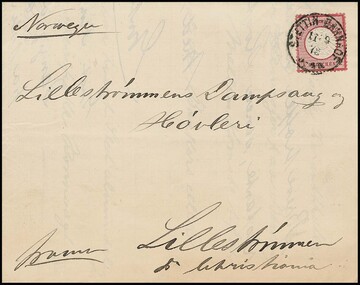 Norwegen
STETTIN-BAHNHOF
Lilleströmmens Dampsaug og
Hövleri
franco
Lilleströmmen
Christiania